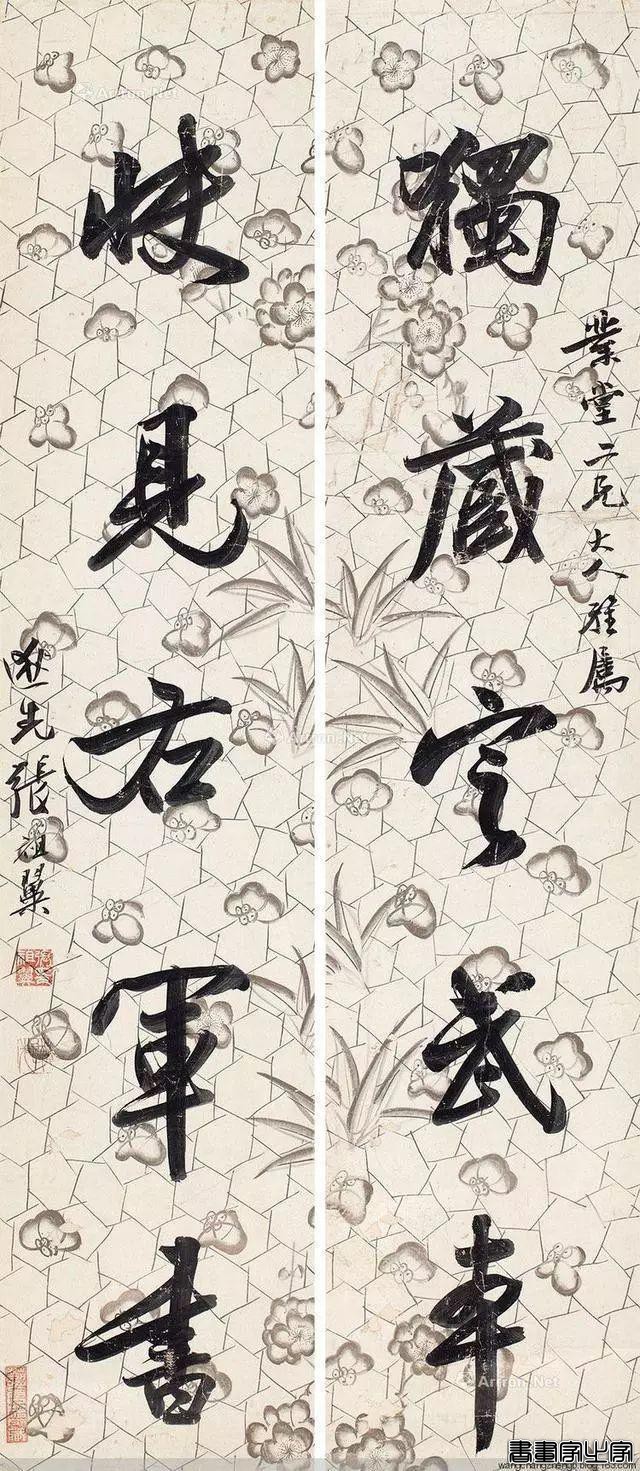 業堂二兄大人雅屬
獨藏定武本
快見右軍書
逖先張祖翼
Artron.Net
書畫家之家